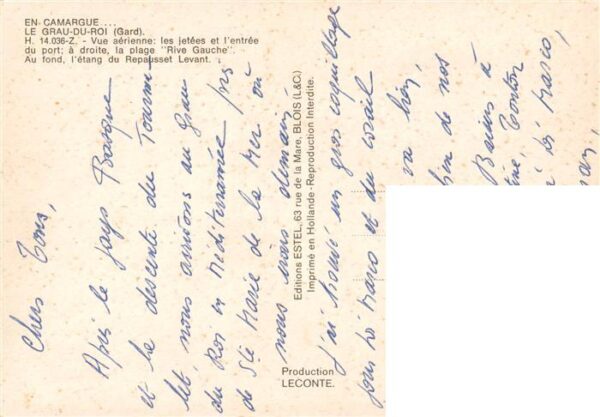 EN CAMARGUE ...
LE GRAU-DU-ROI (Gard).
H. 14.036-Z. - Vue aérienne: les jetées et l'entrée
du port; à droite, la plage "Rive Gauche".
Au fond, l'étang du Repausset Levant.
Chers Tous,
Après le pays Basque
et la descente du
nous arrivons au Grau
du Roi en Méditerranée près
de Ste Marie de la Mer où
nous irons demain
J'ai trouvé un gros coquillage
pour et du corail
va bien,
de nos
Bains à
Tonton
Editions ESTEL, 63 rue de la Mare, BLOIS (L&C.)
Imprimé en Hollande - Reproduction Interdite.
Production
LECONTE.